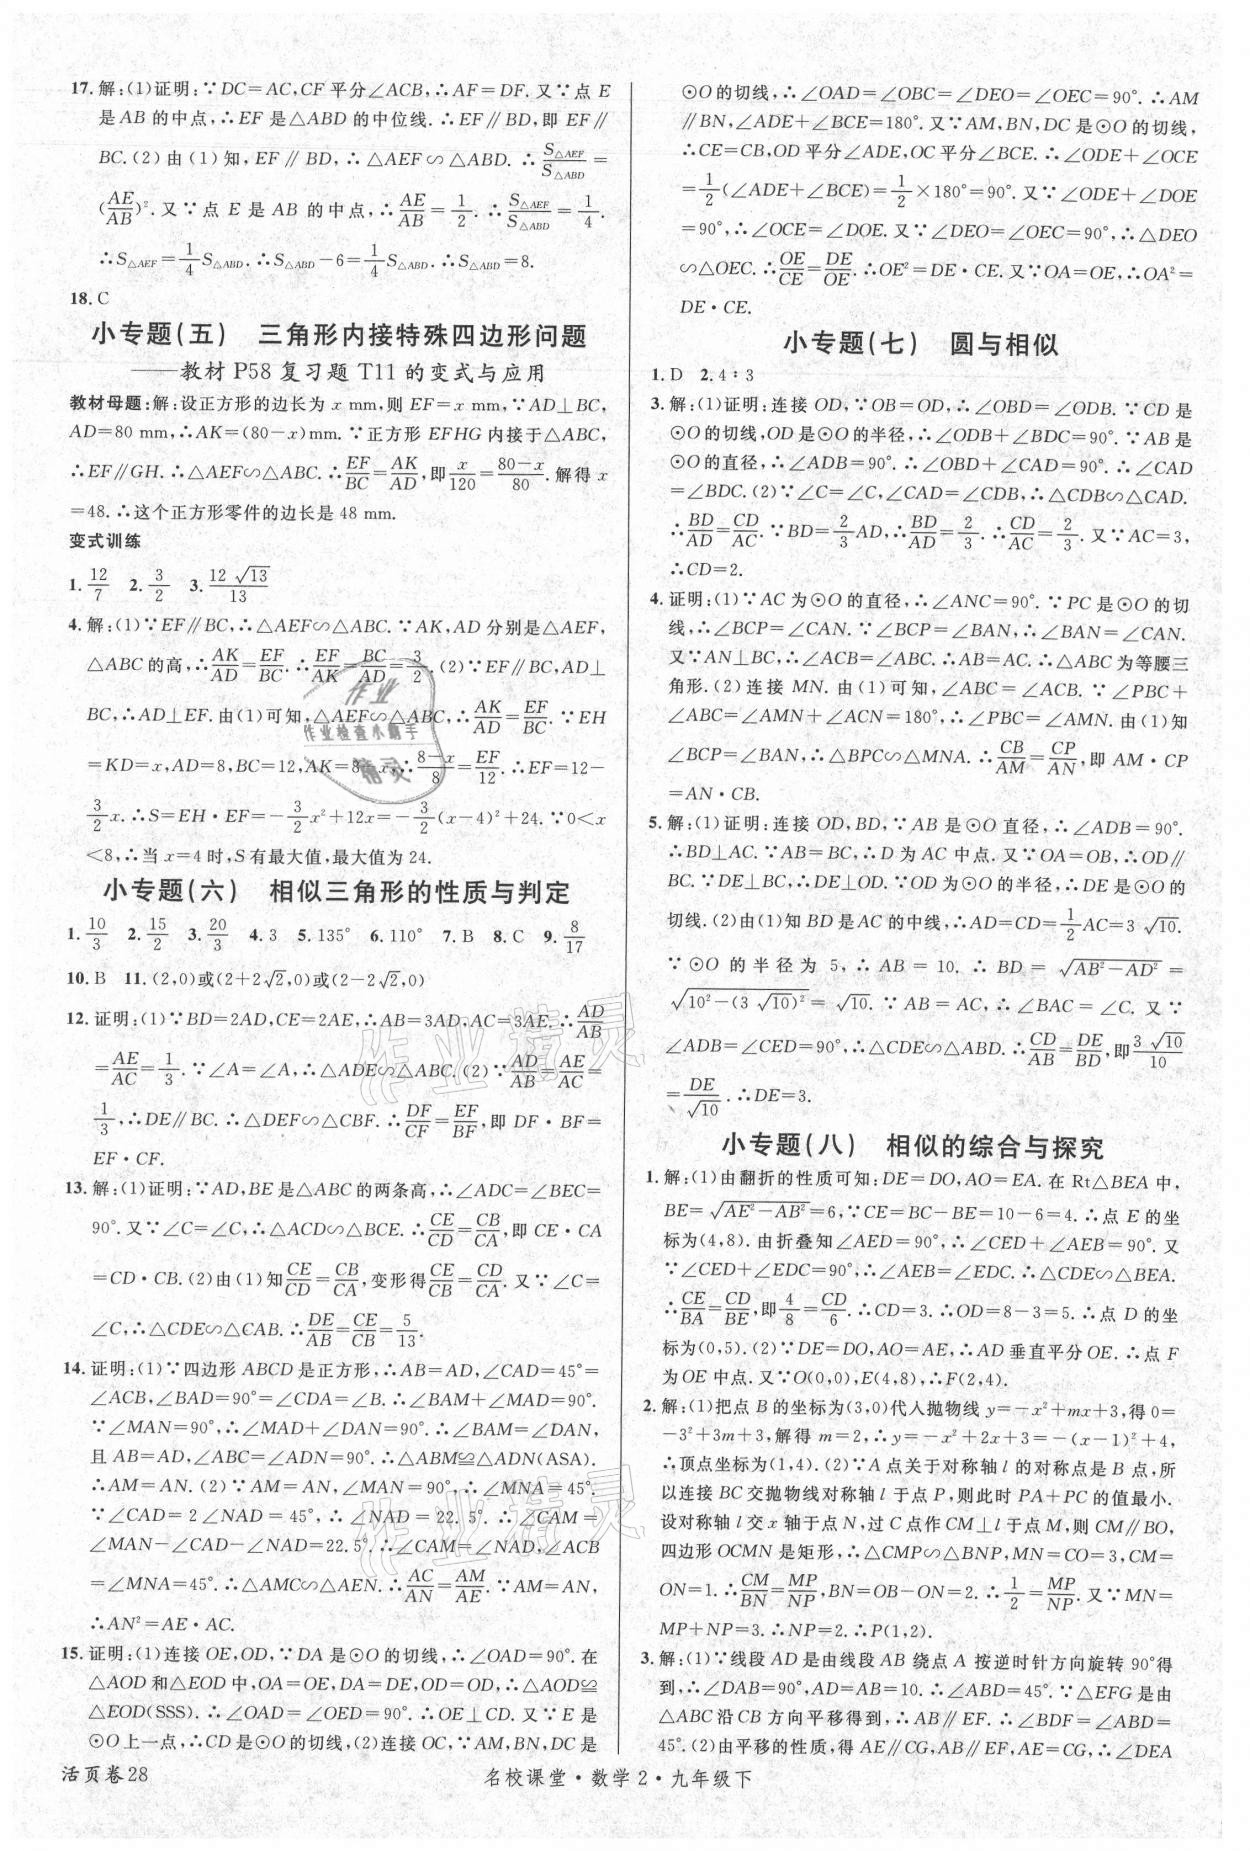 17. 解:(1)证明:∵DC=AC,CF平分∠ACB,∴AF=DF.又∵点E
是AB的中点,∴EF是△ABD的中位线.∴EF∥BD,即EF∥
BC.(2)由(1)知,EF∥BD,∴△AEF∽△ABD.∴S△AEF/S△ABD=
(AE/AB)².又∵点E是AB的中点,∴AE/AB=1/2.∴S△AEF/S△ABD=1/4.
∴S△AEF=1/4S△ABD.∴S△ABD-6=1/4S△ABD.∴S△ABD=8.
18. C
小专题(五) 三角形内接特殊四边形问题
——教材P58复习题T11的变式与应用
教材母题:解:设正方形的边长为x mm,则EF=x mm,∵AD⊥BC,
AD=80 mm,∴AK=(80-x)mm.∵正方形EFHG内接于△ABC,
∴EF∥GH.∴△AEF∽△ABC.∴EF/BC=AK/AD,即x/120=(80-x)/80.解得x
=48.∴这个正方形零件的边长是48 mm.
变式训练
1. 12/7 2. 3/2 3. 12√13/13
4. 解:(1)∵EF∥BC,∴△AEF∽△ABC.∵AK,AD分别是△AEF,
△ABC的高,∴AK/AD=EF/BC.∴EF/AK=BC/AD=3/2.(2)∵EF∥BC,AD⊥
BC,∴AD⊥EF.由(1)可知,△AEF∽△ABC,∴AK/AD=EF/BC.∵EH
=KD=x,AD=8,BC=12,AK=8-x,∴(8-x)/8=EF/12.∴EF=12-
3/2x.∴S=EH·EF=-3/2x²+12x=-3/2(x-4)²+24.∵0<x
<8,∴当x=4时,S有最大值,最大值为24.
小专题(六) 相似三角形的性质与判定
1. 10/3 2. 15/2 3. 20/3 4. 3 5. 135° 6. 110° 7. B 8. C 9. 8/17
10. B 11. (2,0)或(2+2√2,0)或(2-2√2,0)
12. 证明:(1)∵BD=2AD,CE=2AE,∴AB=3AD,AC=3AE.∴AD/AB
=AE/AC=1/3.∵∠A=∠A,∴△ADE∽△ABC.(2)∵AD/AB=AE/AC=
1/3,∴DE∥BC.∴△DEF∽△CBF.∴DF/CF=EF/BF,即DF·BF=
EF·CF.
13. 解:(1)证明:∵AD,BE是△ABC的两条高,∴∠ADC=∠BEC=
90°.又∵∠C=∠C,∴△ACD∽△BCE.∴CE/CD=CB/CA,即CE·CA
=CD·CB.(2)由(1)知CE/CD=CB/CA,变形得CE/CB=CD/CA.又∵∠C=
∠C,∴△CDE∽△CAB.∴DE/AB=CE/CB=5/13.
14. 证明:(1)∵四边形ABCD是正方形,∴AB=AD,∠CAD=45°=
∠ACB,∠BAD=90°=∠CDA=∠B.∴∠BAM+∠MAD=90°.
∵∠MAN=90°,∴∠MAD+∠DAN=90°.∴∠BAM=∠DAN,
且AB=AD,∠ABC=∠ADN=90°.∴△ABM≌△ADN(ASA).
∴AM=AN.(2)∵AM=AN,∠MAN=90°,∴∠MNA=45°.
∵∠CAD=2∠NAD=45°,∴∠NAD=22.5°.∴∠CAM=
∠MAN-∠CAD-∠NAD=22.5°.∴∠CAM=∠NAD,∠ACB
=∠MNA=45°.∴△AMC∽△AEN.∴AC/AN=AM/AE.∵AM=AN,
∴AN²=AE·AC.
15. 证明:(1)连接OE,OD,∵DA是⊙O的切线,∴∠OAD=90°.在
△AOD和△EOD中,OA=OE,DA=DE,OD=OD,∴△AOD≌
△EOD(SSS).∴∠OAD=∠OED=90°.∴OE⊥CD.又∵E是
⊙O上一点,∴CD是⊙O的切线,(2)连接OC,∵AM,BN,DC是
⊙O的切线,∴∠OAD=∠OBC=∠DEO=∠OEC=90°.∴AM
∥BN,∠ADE+∠BCE=180°.又∵AM,BN,DC是⊙O的切线,
∴CE=CB,OD平分∠ADE,OC平分∠BCE.∴∠ODE+∠OCE
=1/2(∠ADE+∠BCE)=1/2×180°=90°.又∵∠ODE+∠DOE
=90°,∴∠OCE=∠DOE.又∵∠DEO=∠OEC=90°,∴△DEO
∽△OEC.∴OE/CE=DE/OE.∴OE²=DE·CE.又∵OA=OE,∴OA²=
DE·CE.
小专题(七) 圆与相似
1. D 2. 4∶3
3. 解:(1)证明:连接OD,∵OB=OD,∴∠OBD=∠ODB.∵CD是
⊙O的切线,OD是⊙O的半径,∴∠ODB+∠BDC=90°.∵AB是
⊙O的直径,∴∠ADB=90°.∴∠OBD+∠CAD=90°.∴∠CAD
=∠BDC.(2)∵∠C=∠C,∠CAD=∠CDB,∴△CDB∽△CAD.
∴BD/AD=CD/AC.∵BD=2/3AD,∴BD/AD=2/3.∴CD/AC=2/3.又∵AC=3,
∴CD=2.
4. 证明:(1)∵AC为⊙O的直径,∴∠ANC=90°.∵PC是⊙O的切
线,∴∠BCP=∠CAN.∵∠BCP=∠BAN,∴∠BAN=∠CAN.
又∵AN⊥BC,∴∠ACB=∠ABC.∴AB=AC.∴△ABC为等腰三
角形.(2)连接MN.由(1)可知,∠ABC=∠ACB.∵∠PBC+
∠ABC=∠AMN+∠ACN=180°,∴∠PBC=∠AMN.由(1)知
∠BCP=∠BAN,∴△BPC∽△MNA.∴CB/AM=CP/AN,即AM·CP
=AN·CB.
5. 解:(1)证明:连接OD,BD,∵AB是⊙O直径,∴∠ADB=90°.
∴BD⊥AC.∵AB=BC,∴D为AC中点.又∵OA=OB,∴OD∥
BC.∵DE⊥BC,∴DE⊥OD.∵OD为⊙O的半径,∴DE是⊙O的
切线.(2)由(1)知BD是AC的中线,∴AD=CD=1/2AC=3√10.
∵⊙O的半径为5,∴AB=10.∴BD=√(AB²-AD²)=
√(10²-(3√10)²)=√10.∵AB=AC,∴∠BAC=∠C.又∵
∠ADB=∠CED=90°,∴△CDE∽△ABD.∴CD/AB=DE/BD,即3√10/10
=DE/√10.∴DE=3.
小专题(八) 相似的综合与探究
1. 解:(1)由翻折的性质可知:DE=DO,AO=EA.在Rt△BEA中,
BE=√(AE²-AB²)=6,∵CE=BC-BE=10-6=4.∴点E的坐
标为(4,8).由折叠知∠AED=90°,∴∠CED+∠AEB=90°.又
∵∠CED+∠EDC=90°,∴∠AEB=∠EDC.∴△CDE∽△BEA.
∴CE/BA=CD/BE,即4/8=CD/6.∴CD=3.∴OD=8-3=5.∴点D的坐
标为(0,5).(2)∵DE=DO,AO=AE,∴AD垂直平分OE.∴点F
为OE中点.又∵O(0,0),E(4,8),∴F(2,4).
2. 解:(1)把点B的坐标为(3,0)代人抛物线y=-x²+mx+3,得0=
-3²+3m+3,解得m=2,∴y=-x²+2x+3=-(x-1)²+4,
∴顶点坐标为(1,4).(2)∵A点关于对称轴l的对称点是B点,所
以连接BC交抛物线对称轴l于点P,则此时PA+PC的值最小.
设对称轴l交x轴于点N,过C点作CM⊥l于点M,则CM∥BO,
四边形OCMN是矩形,∴△CMP∽△BNP,MN=CO=3,CM=
ON=1.∴CM/BN=MP/NP,BN=OB-ON=2.∴1/2=MP/NP.又∵MN=
MP+NP=3.∴NP=2.∴P(1,2).
3. 解:(1)∵线段AD是由线段AB绕点A按逆时针方向旋转90°得
到,∴∠DAB=90°,AD=AB=10.∴∠ABD=45°.∵△EFG是由
△ABC沿CB方向平移得到,∴AB∥EF.∴∠BDF=∠ABD=
45°.(2)由平移的性质,得AE∥CG,AB∥EF,∴∠DEA
活页卷28
名校课堂·数学2·九年级下
作业
作业检查小帮手
精灵
作业精灵
作业精灵